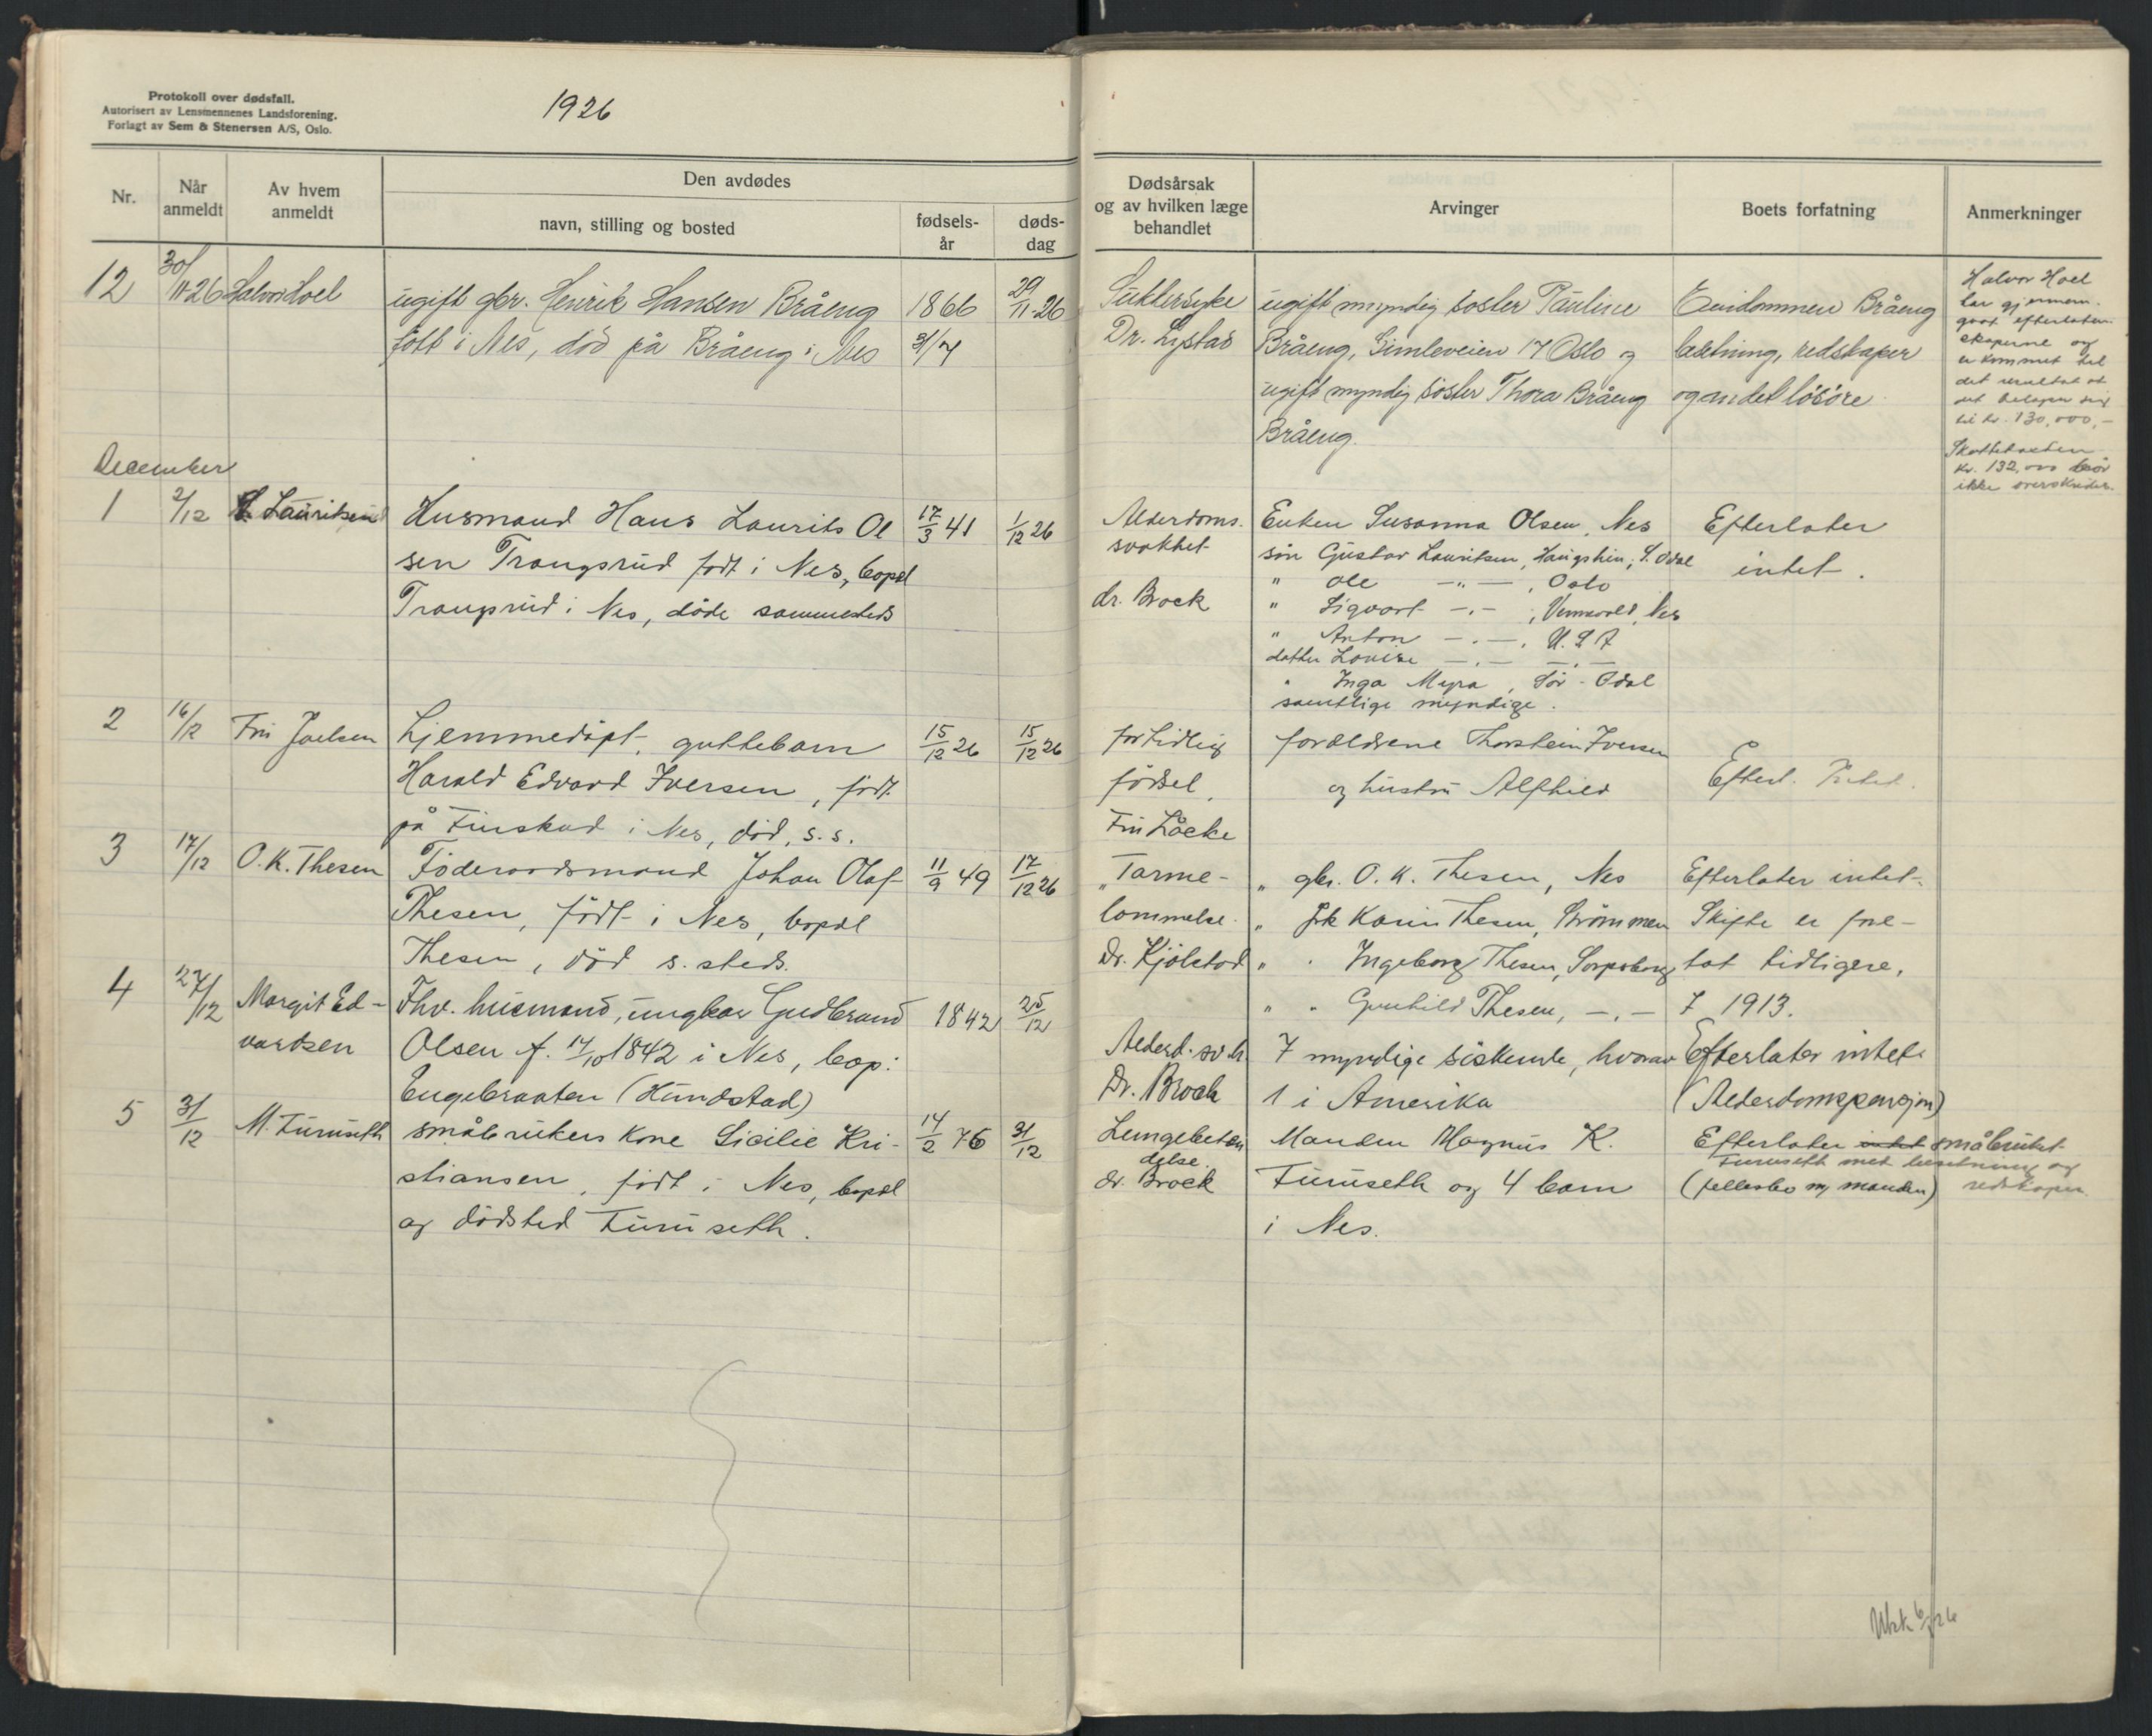 Protokoll over dødsfall.
Autorisert av Lensmennenes Landsforening.
Forlagt av Sem & Stenersen A/S, Oslo.
1926
Nr.
Når anmeldt
Av hvem anmeldt
Den avdødes
navn, stilling og bosted
fødsels-år
døds-dag
12 30/11-26 Halvor Hoel
ugift gbr. Henrik Hansen Bråeng 1866 29/11-26
født i Nes, død på Bråeng i Nes 31/7
December
1 2/12 Lauritsen Husmand Hans Laurits Ol 17/3 41 1/12 26
sen Trangsrud født i Nes, bopæl
Trangsrud i Nes, døde sammesteds
2 16/12 Fru Joelsen Hjemmedøpt, guttebarn 15/12 26 15/12 26
Harald Edvard Iversen, født
på Finskud i Nes, død, s.s.
3 17/12 O. K. Thesen Føderaadsmand Johan Olaf 11/9 49 17/12 26
Thesen, født i Nes, bopæl
Thesen, død s. steds.
4 27/12 Margit Ed- Fhv. husmand, ungkar Gudbrand 1842 25/12
vardsen Olsen f. 14/10 1842 i Nes, bop:
Engebraaten (Hundstad)
5 31/12 M. Furuseth småbrukers kone Sicilie Kri- 14/2 76 31/12
stiansen, født i Nes, bopæl
og dødsted Furuseth.
Dødsårsak
og av hvilken læge
behandlet
Arvinger
Boets forfatning
Anmerkninger
Sukkersyke ugift myndig søster Pauline Eiendommen Bråeng
Dr. Lystad Bråeng, Gimleveien 17 Oslo og besetning, redskaper
ugift myndig søster Thora Bråeng og andet løsøre
Bråeng.
Halvor Hoel
har gjennem-
gaat efterlaten-
skaperne og
er kommet til
det resultat at
det beløper sig
til kr. 130,000,-
Skattetaksten
kr. 132,000 bør
ikke overskrides.
Alderdoms- Enken Susanna Olsen, Nes Efterlater
svakhet søn Gustav Lauritsen, Haugstein, S. Odal intet.
" Ole -"- , Oslo
dr. Brock " Sigvart -"- , Vormsvold, Nes
" Anton -"- , U.S.A
datter Louise -"- -"-
" Inga Myra, Sør-Odal
samtlige myndige.
for tidlig forældrene Thorstein Iversen
fødsel. og hustru Alfhild Efterl. Intet.
Fru Låcke
"Tarme- " gbr. O. K. Thesen, Nes Efterlater intet.
lommelse. " frk Karin Thesen, Strømmen Skifte er fore-
Dr. Kjølstad " " Ingeborg Thesen, Sarpsborg tat tidligere,
" " Gunhild Thesen, -"- i 1913.
Alderd. sv.h. 7 myndige søskende, hvorav Efterlater intet
Dr. Brock 1 i Amerika (Alderdomspensjon)
Lungebeten- Manden Magnus K. Efterlater intet småbruket
delse. Furuseth met besetning og
dr. Brock Furuseth og 4 barn (fellesbo m/ manden) redskaper
i Nes.